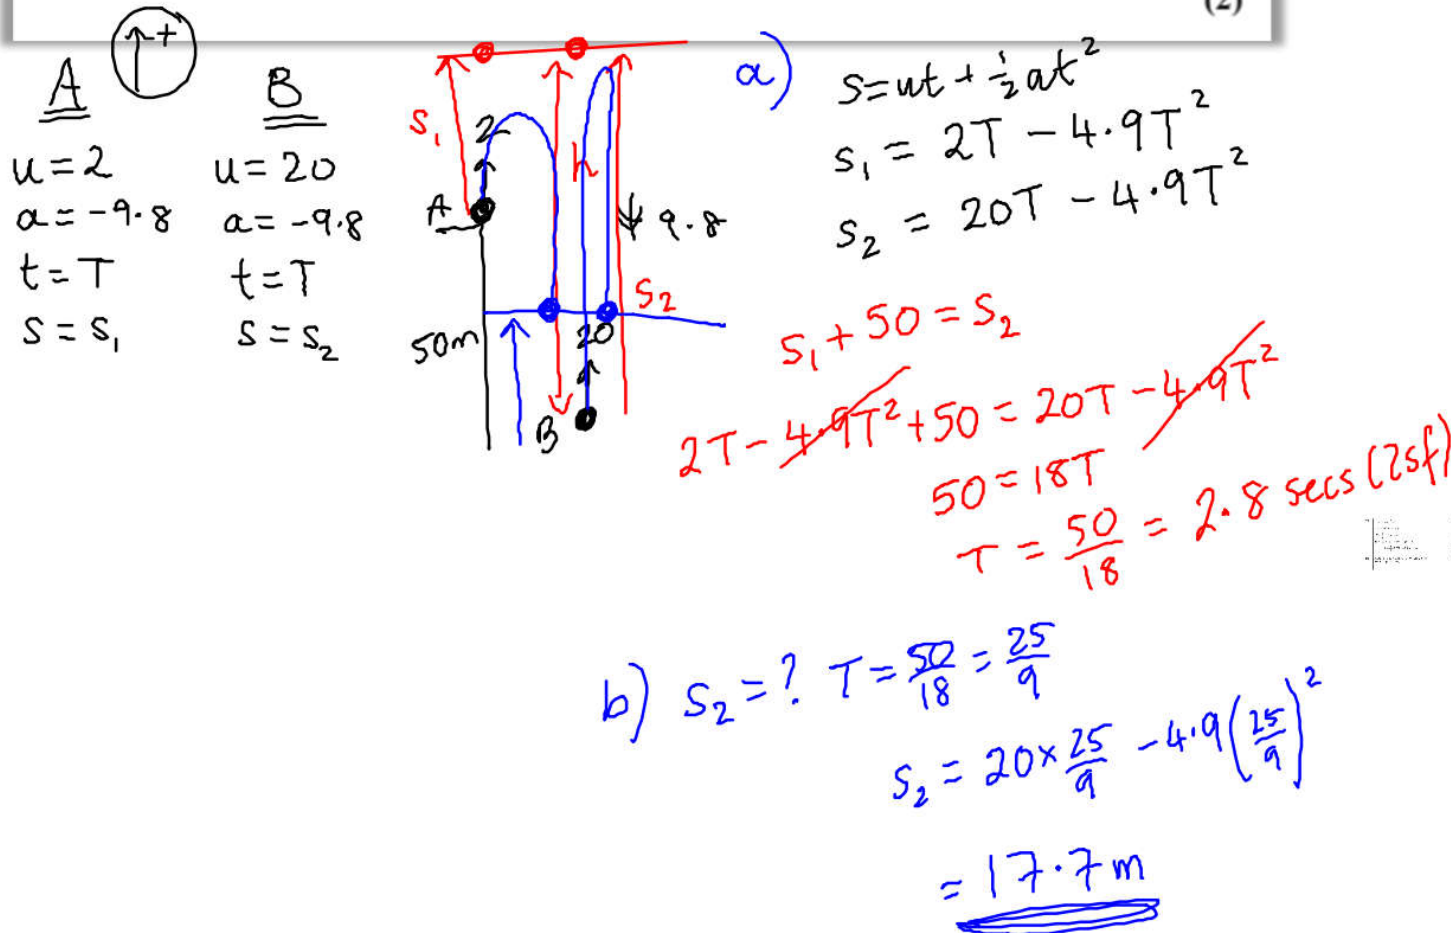 (2)
↑+
A
u = 2
a = -9.8
t = T
s = s₁
B
u = 20
a = -9.8
t = T
s = s₂
s₁
2
A
h
9.8
s₂
50m
20
B
a)
s = ut + ½at²
s₁ = 2T - 4.9T²
s₂ = 20T - 4.9T²
s₁ + 50 = s₂
2T - 4.9T² + 50 = 20T - 4.9T²
50 = 18T
T = 50/18 = 2.8 secs (2sf)
b) s₂ = ? T = 50/18 = 25/9
s₂ = 20 × 25/9 - 4.9(25/9)²
= 17.7m